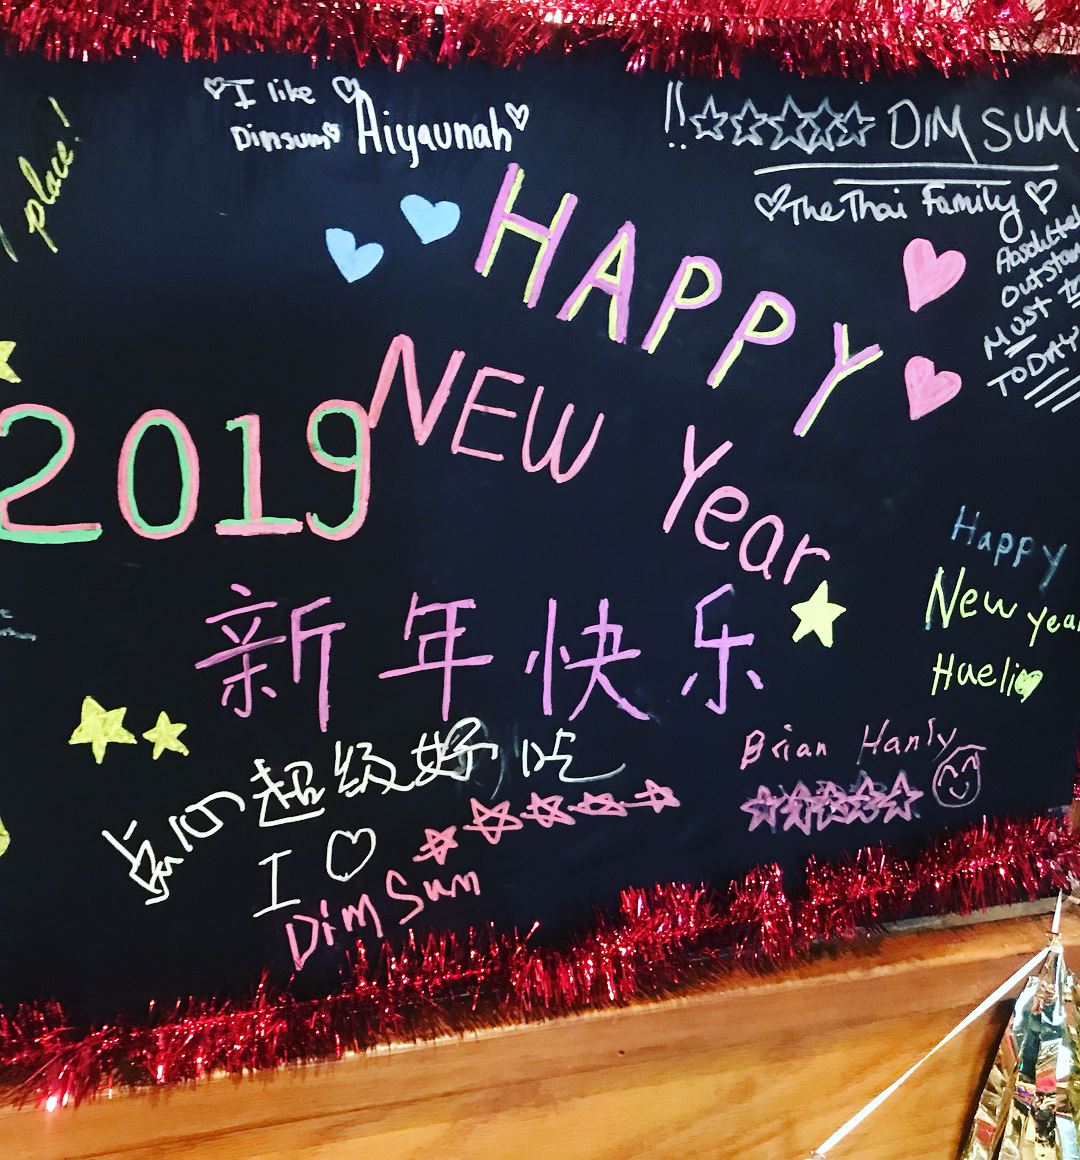 place!
I like
Dimsum
Aiyaunah
!! DIM SUM
The Thai Family
MUST
TODAY
HAPPY
NEW
Year
2019
新年快乐
点心超级好吃
I ♡
Dim Sum
Happy
New year
Haeli
Brian Hanly